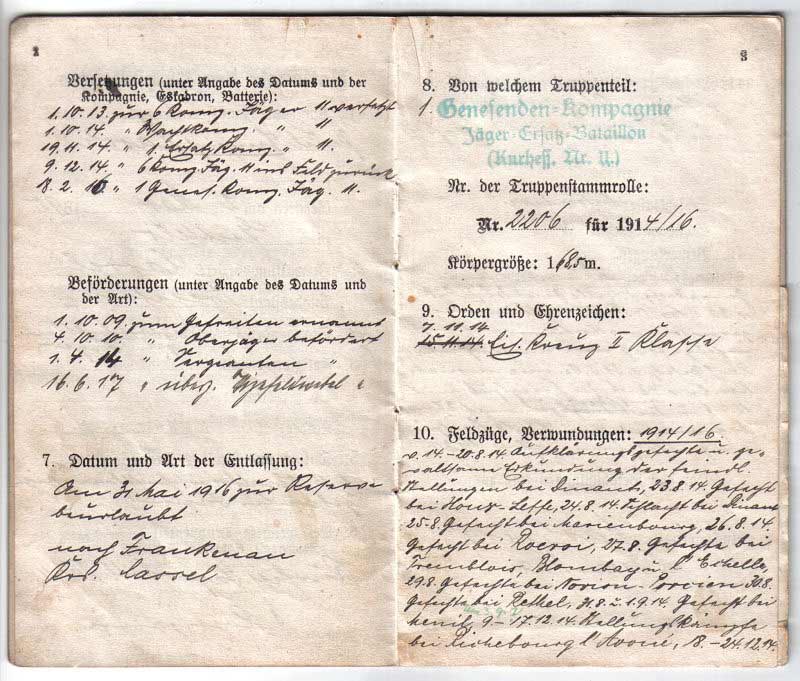 2
Versetzungen (unter Angabe des Datums und der
Kompagnie, Eskadron, Batterie):
1. 10. 13. zur 6 Komp. Jäger 11 versetzt
1. 10. 14. " " 11
19. 11. 14. " 1. Ersatz Komp. " 11.
9. 12. 14. " 6 Komp. Jäg. 11 ins Feld zurück
18. 2. 16 " 1 Genes. Komp. Jäg. 11.
Beförderungen (unter Angabe des Datums und
der Art):
1. 10. 09. zum Gefreiten ernannt
4. 10. 10. " Oberjäger befördert
1. 4. 14 " Sergeanten "
16. 6. 17 " überz. Vizefeldwebel "
7. Datum und Art der Entlassung:
Am 31 Mai 1916 zur Reserve
beurlaubt
nach Frankenau
Krs. Cassel
3
8. Von welchem Truppenteil:
1. Genesenden-Kompagnie
Jäger-Ersatz-Bataillon
(Kurhess. Nr. 11.)
Nr. der Truppenstammrolle:
Nr. 2206 für 1914/16.
Körpergröße: 1,685 m.
9. Orden und Ehrenzeichen:
7. 11. 14
15. 11. 14. Eis. Kreuz II Klasse
10. Feldzüge, Verwundungen: 1914/16.
v. 14. - 20.8.14. Aufklärungsgefechte u. ge-
waltsame Erkundung der feindl.
Stellungen bei Dinant, 23.8.14. Gefecht
bei Houx-Leffe, 24.8.14. Schlacht bei Dinant
25.8. Gefecht bei Marienbourg, 26.8.14.
Gefecht bei Rocroi, 27.8. Gefechte bei
Tremblois, Blombay u. l'Echelle,
29.8. Gefechte bei Novion-Porcien 30.8.
Gefechte bei Rethel, 31.8. u. 1.9.14. Gefecht bei
9. - 17.12.14. Stellungskämpfe
bei Richebourg l'Avoué, 18. - 24.12.14.